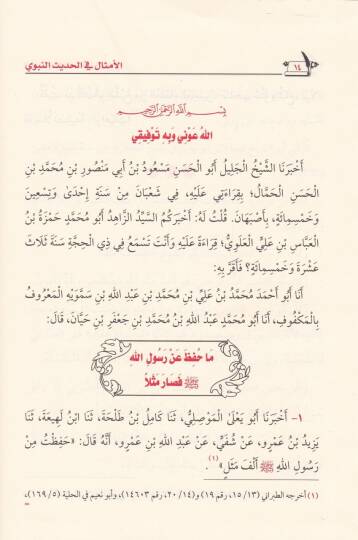 ١٤
الأمثال في الحديث النبوي
بِسْمِ اللَّهِ الرَّحْمَنِ الرَّحِيمِ
اللهُ عَوْنِي وَبِهِ تَوْفِيقِي
أَخْبَرَنَا الشَّيْخُ الجَلِيلُ أَبُو الحَسَنِ مَسْعُودُ بْنُ أَبِي مَنْصُورِ بْنِ مُحَمَّدِ بْنِ
الحَسَنِ الحَمَّالُ؛ بِقِرَاءَتِي عَلَيْهِ، فِي شَعْبَانَ مِنْ سَنَةِ إِحْدَى وَتِسْعِينَ
وَخَمْسِمِائَةٍ، بِأَصْبَهَانَ. قُلْتُ لَهُ: أَخْبَرَكُمُ السَّيِّدُ الزَّاهِدُ أَبُو مُحَمَّدٍ حَمْزَةُ بْنُ
العَبَّاسِ بْنِ عَلِيٍّ العَلَوِيُّ؛ قِرَاءَةً عَلَيْهِ وَأَنْتَ تَسْمَعُ فِي ذِي الحِجَّةِ سَنَةَ ثَلَاثَ
عَشْرَةَ وَخَمْسِمِائَةٍ؟ فَأَقَرَّ بِهِ:
أَنَا أَبُو أَحْمَدَ مُحَمَّدُ بْنُ عَلِيِّ بْنِ مُحَمَّدِ بْنِ عَبْدِ اللهِ بْنِ سَمَّوَيْهِ المَعْرُوفُ
بِالمَكْفُوفِ، أَنَا أَبُو مُحَمَّدٍ عَبْدُ اللهِ بْنُ مُحَمَّدِ بْنِ جَعْفَرِ بْنِ حَيَّانَ، قَالَ:
مَا حُفِظَ عَنْ رَسُولِ اللهِ
ﷺ فَصَارَ مَثَلًا
١- أَخْبَرَنَا أَبُو يَعْلَى المَوْصِلِيُّ، ثَنَا كَامِلُ بْنُ طَلْحَةَ، ثَنَا ابْنُ لَهِيعَةَ، ثَنَا
يَزِيدُ بْنُ عَمْرٍو، عَنْ شُفَيٍّ، عَنْ عَبْدِ اللهِ بْنِ عَمْرٍو، أَنَّهُ قَالَ: «حَفِظْتُ مِنْ
رَسُولِ اللهِ ﷺ أَلْفَ مَثَلٍ»(١).
(١) أخرجه الطبراني (١٣/١٥، رقم ١٩) و(١٤/٢٠، رقم ١٤٦٠٣)، وأبو نعيم في الحلية (٥/١٦٩)،
=